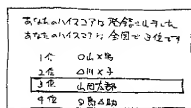 あなたのハイスコアは登録されました
あなたのハイスコアは全国で3位です
1位 〇山×男
2位 △川×子
3位 山田太郎
4位 〇島△助